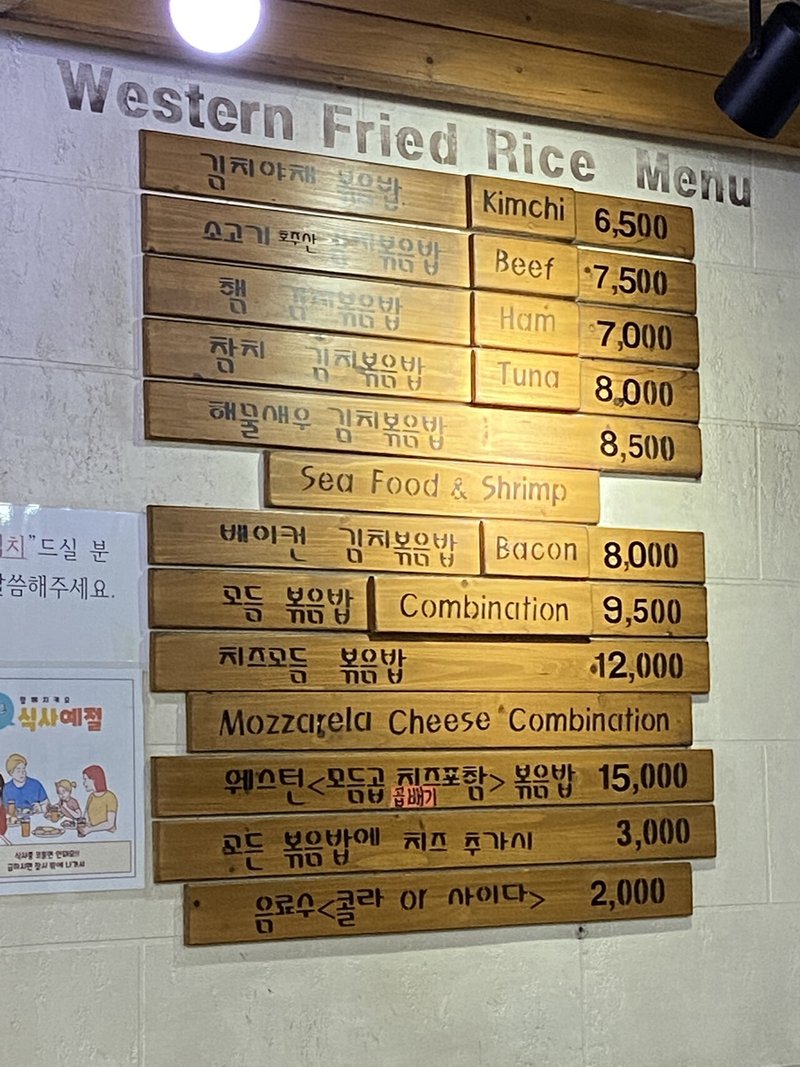 Western Fried Rice Menu
김치야채 볶음밥 Kimchi 6,500
소고기 호주산 김치볶음밥 Beef 7,500
햄 김치볶음밥 Ham 7,000
참치 김치볶음밥 Tuna 8,000
해물새우 김치볶음밥 8,500
Sea Food & Shrimp
베이컨 김치볶음밥 Bacon 8,000
모듬 볶음밥 Combination 9,500
치즈모듬 볶음밥 12,000
Mozzarela Cheese Combination
웨스턴<모듬곱 치즈포함> 볶음밥 15,000
곱배기
모든 볶음밥에 치즈 추가시 3,000
음료수<콜라 or 사이다> 2,000
치"드실 분
말씀해주세요.
식사예절